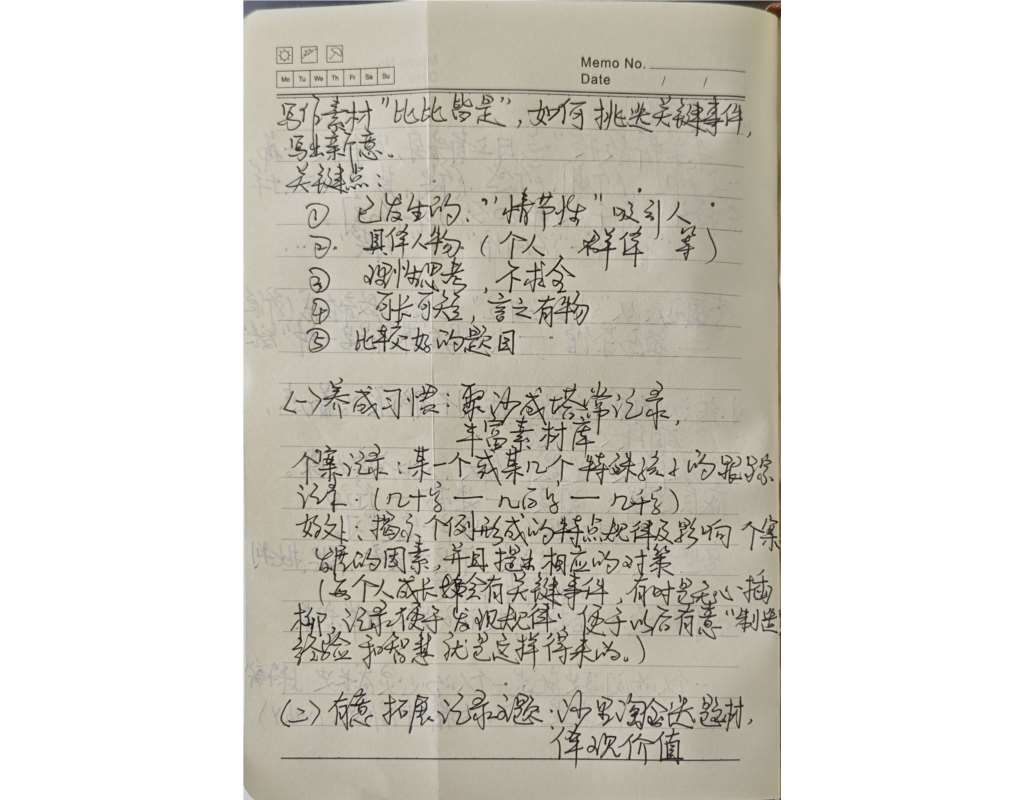 Memo No.
Mo Tu We Th Fr Sa Su
Date / /
写作素材"比比皆是",如何挑选关键事件,
写出新意。
关键点:
① 已发生的、"情节性"吸引人
② 具体人物(个人 群体 等)
③ 理性思考,不求全
④ 可长可短,言之有物
⑤ 比较好的题目
(一)养成习惯:聚沙成塔常记录,
丰富素材库
个案记录:某一个或某几个特殊孩子的跟踪
记录.(几十字—几百字—几千字)
好处:揭示个例形成的特点规律及影响个案
发展的因素,并且提出相应的对策
(每个人成长都会有关键事件,有时是无心插
柳,记录便于发现规律,便于以后有意"制造"
经验和智慧就是这样得来的。)
(二)有意拓展记录主题:沙里淘金选题材,
体现价值